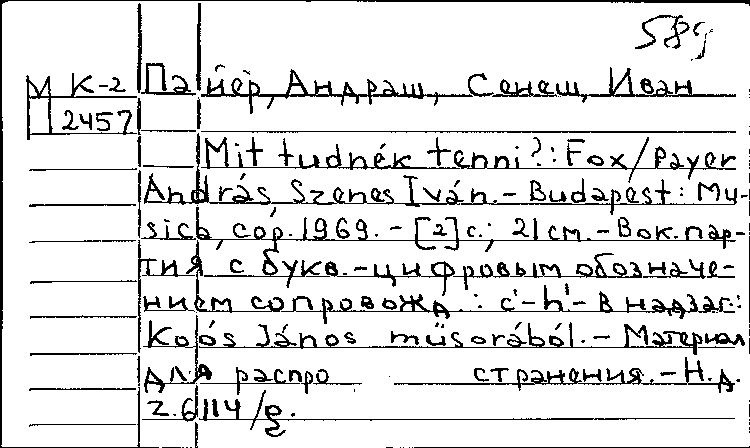 589
М К-2 Пайер, Андраш, Сенеш, Иван
2457
Mit tudnék tenni?: Fox/Payer
András, Szenes Iván.- Budapest: Mu-
sica, cop. 1969. - [2] с.; 21 см. - Вок. пар-
тия с букв.-цифровым обозначе-
нием сопровожд.: c'-h'- В надзаг:
Koós János müsorából. - Материал
для распро странения. - Н.д.
Z.6114/g.